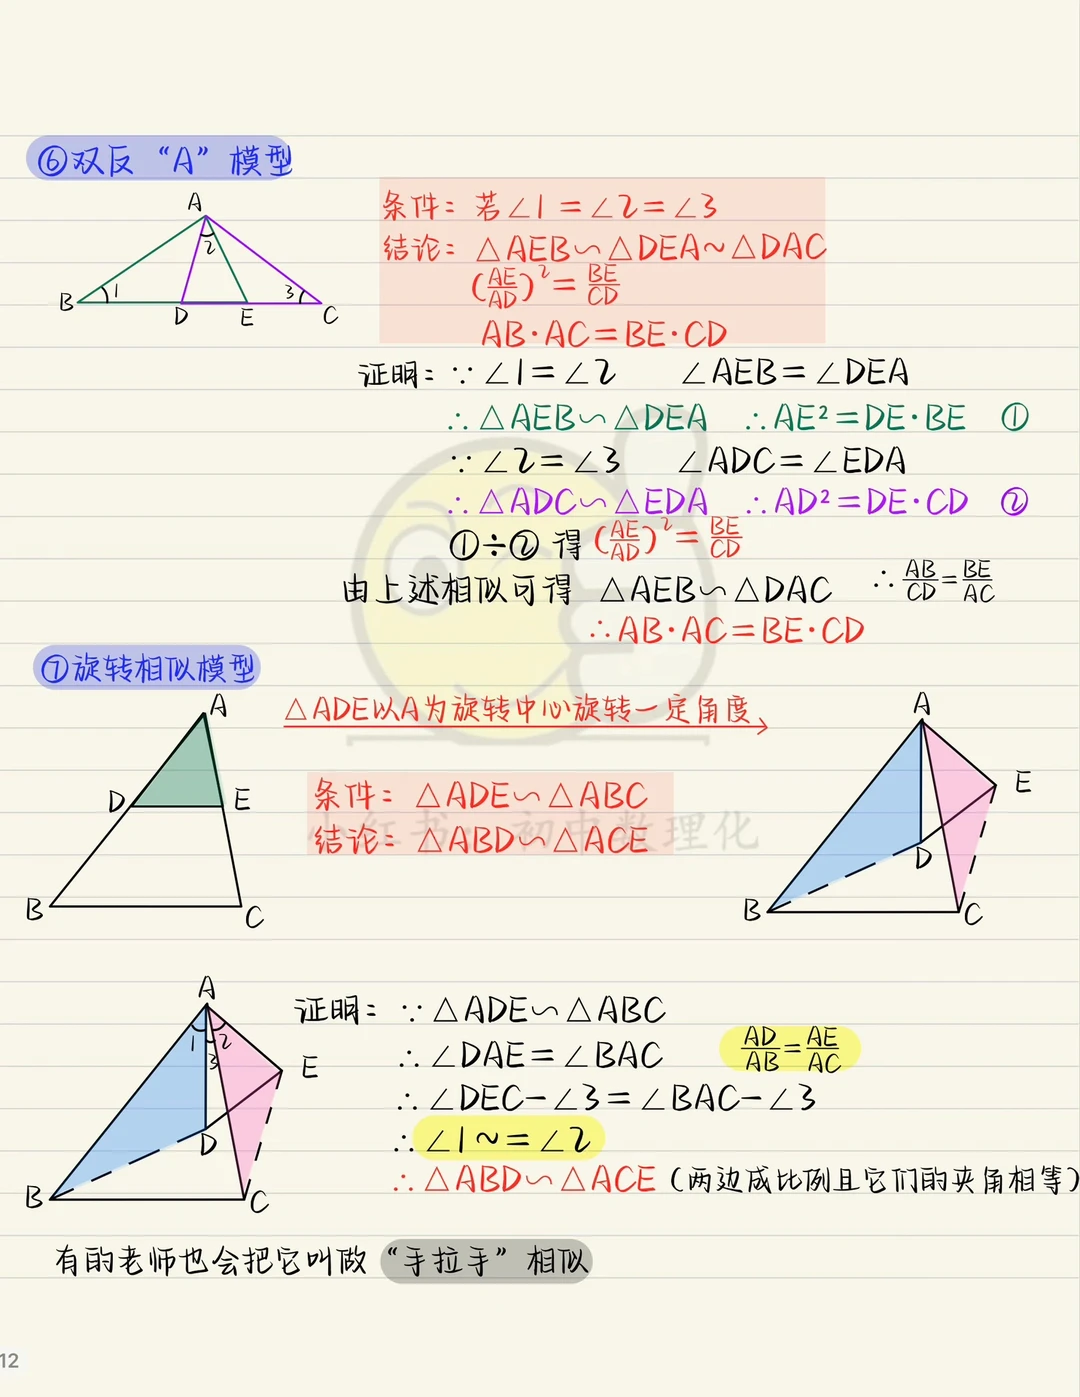 ⑥双反“A”模型
A
2
B 1 3 C
D E
条件：若∠1=∠2=∠3
结论：△AEB∽△DEA~△DAC
(AE/AD)²=BE/CD
AB·AC=BE·CD
证明：∵∠1=∠2 ∠AEB=∠DEA
∴△AEB∽△DEA ∴AE²=DE·BE ①
∵∠2=∠3 ∠ADC=∠EDA
∴△ADC∽△EDA ∴AD²=DE·CD ②
①÷②得(AE/AD)²=BE/CD
由上述相似可得 △AEB∽△DAC ∴AB/CD=BE/AC
∴AB·AC=BE·CD
⑦旋转相似模型
A
D E
B C
△ADE以A为旋转中心旋转一定角度
条件：△ADE∽△ABC
结论：△ABD∽△ACE
小红书：初中数理化
A
E
D
B C
A
1 2
3
E
D
B C
证明：∵△ADE∽△ABC
∴∠DAE=∠BAC AD/AB=AE/AC
∴∠DEC-∠3=∠BAC-∠3
∴∠1~=∠2
∴△ABD∽△ACE（两边成比例且它们的夹角相等）
有的老师也会把它叫做“手拉手”相似
12